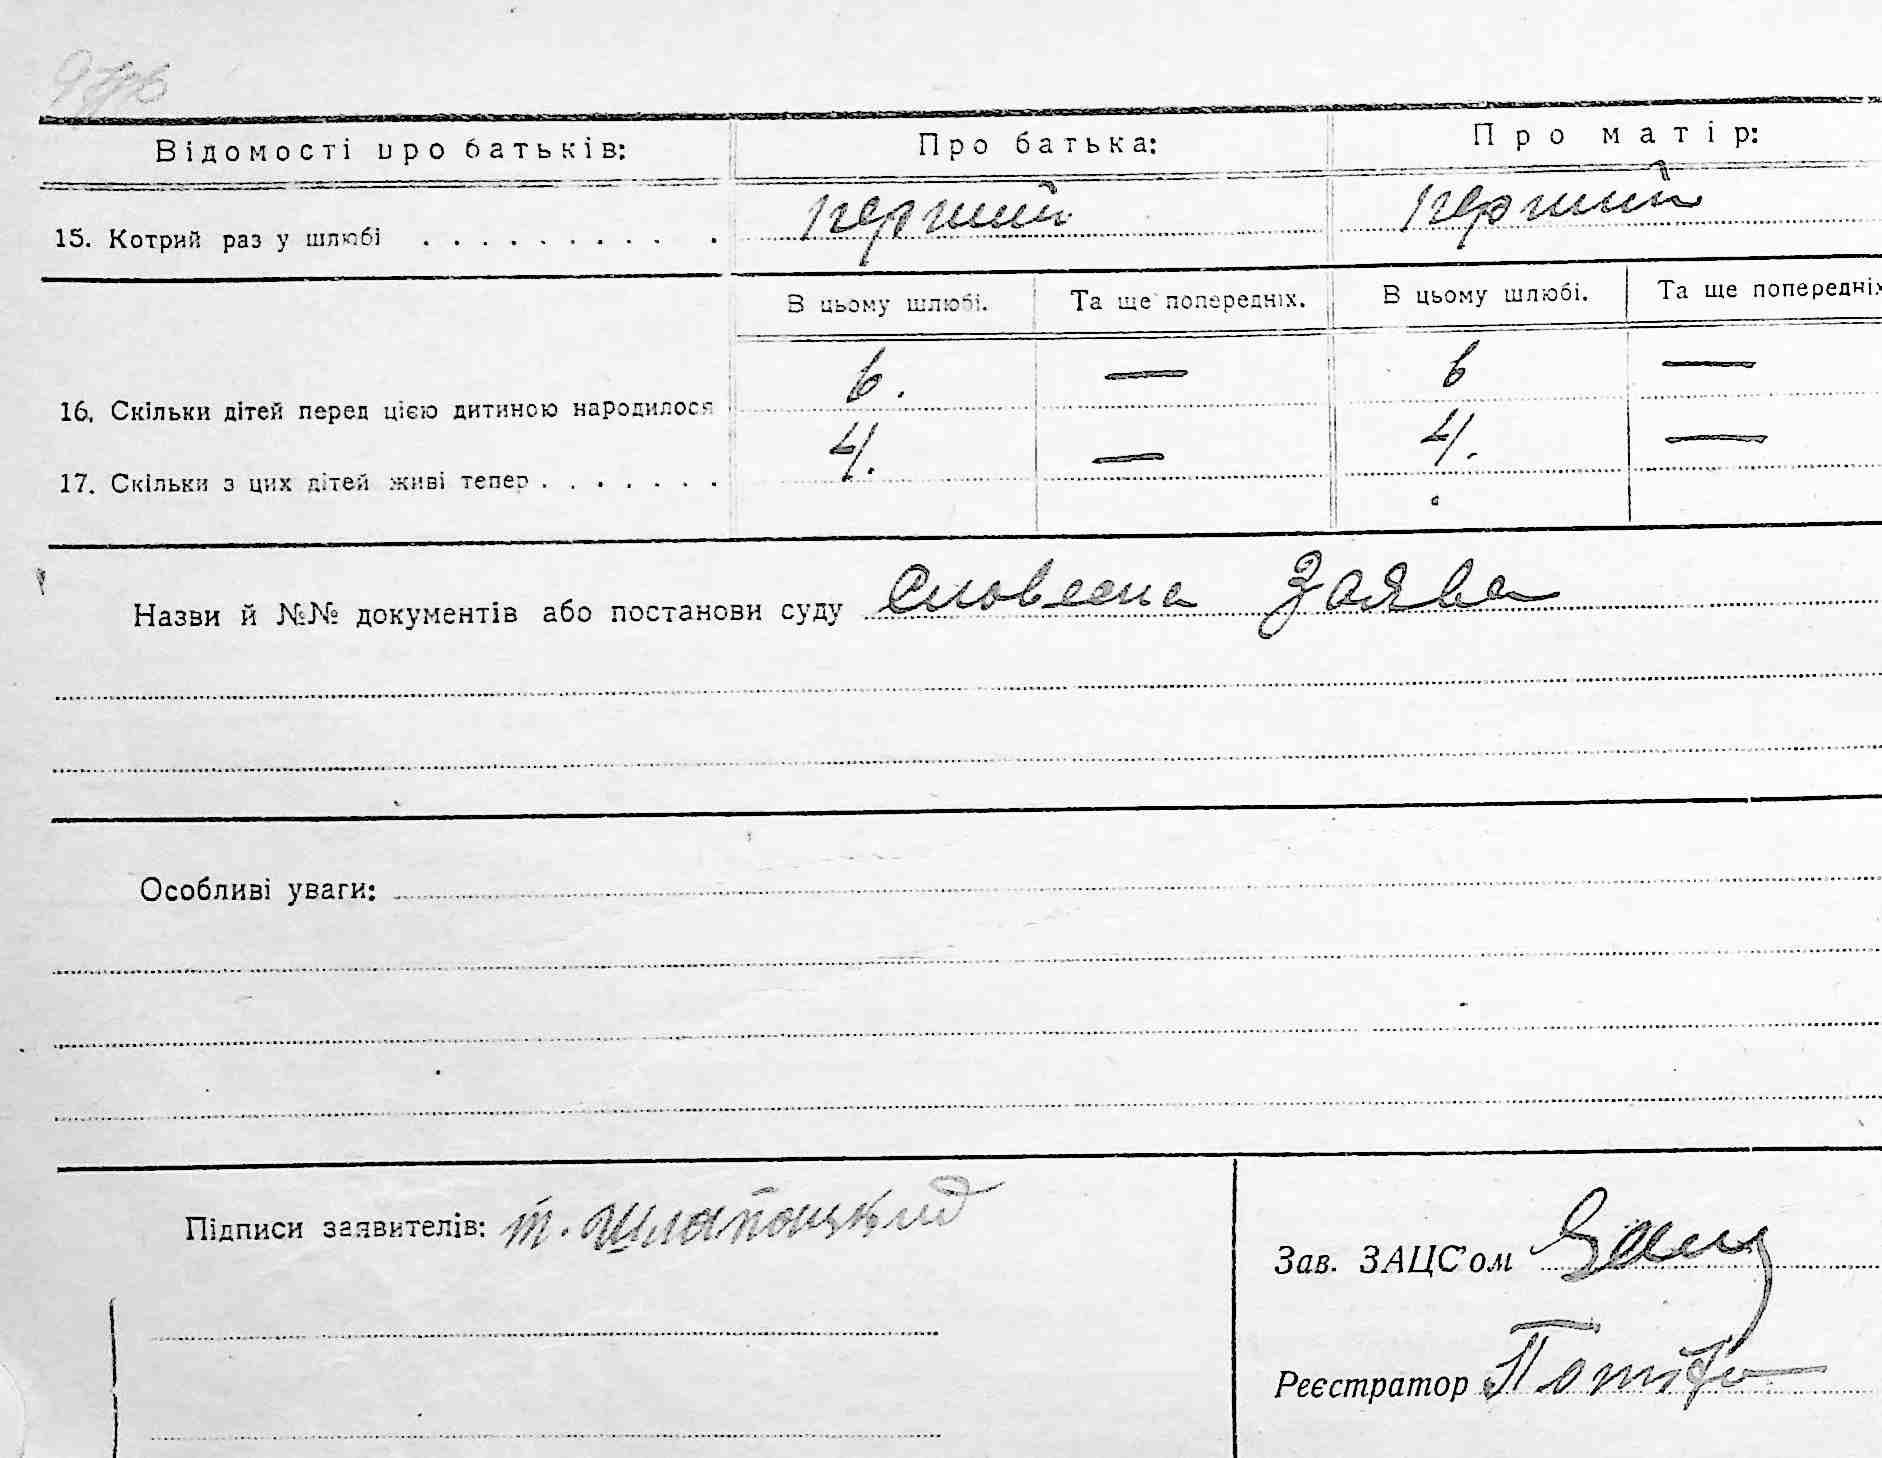 Відомості про батьків:
Про батька:
Про матір:
15. Котрий раз у шлюбі . . . . . . . . . .
перший
перший
В цьому шлюбі.
Та ще попередніх.
В цьому шлюбі.
Та ще попередніх
16. Скільки дітей перед цією дитиною народилося
6.
—
6
—
17. Скільки з цих дітей живі тепер . . . . . . .
4.
—
4.
—
Назви й №№ документів або постанови суду словесна заява
Особливі уваги:
Підписи заявителів:
Зав. ЗАЦС'ом
Реєстратор